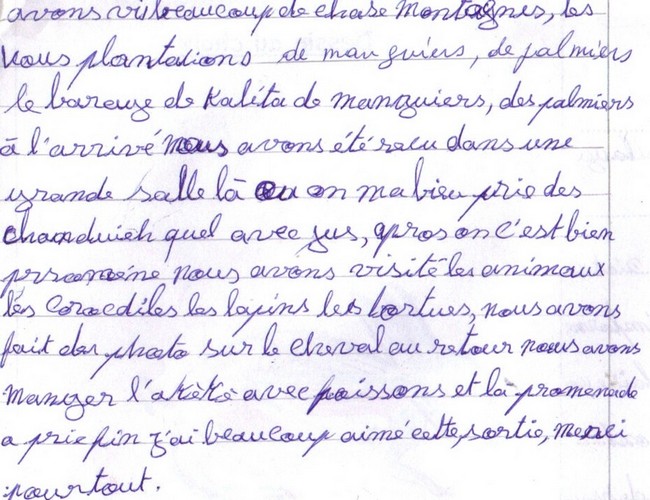 avons vu beaucoup de chose Montagnes, les
Nous plantations de manguiers, de palmiers
le barage de Kalita de manguiers, des palmiers
à l'arrivé nous avons été recu dans une
grande salle là ou on ma bien prie des
chanduich quel avec jus, apros on c'est bien
nous avons visité les animaux
les corocdiles les lapins les tortues, nous avons
fait des photo sur le cheval au retour nous avons
manger l'akèkè avec poissons et la promenade
a prie fin j'ai beaucoup aimé cette sortie, merci
pour tout.